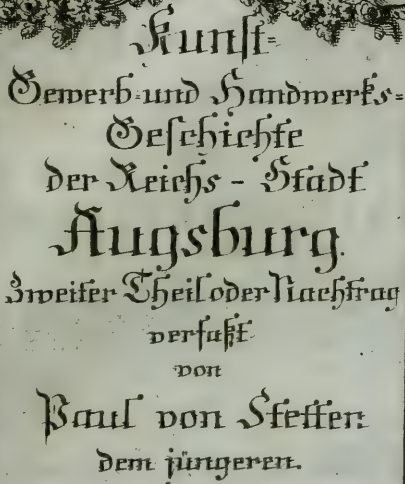 Kunst-
Gewerb- und Handwerks-
Geschichte
der Reichs - Stadt
Augsburg.
Zweiter Theil oder Nachtrag
verfaßt
von
Paul von Stetten
dem jüngeren.